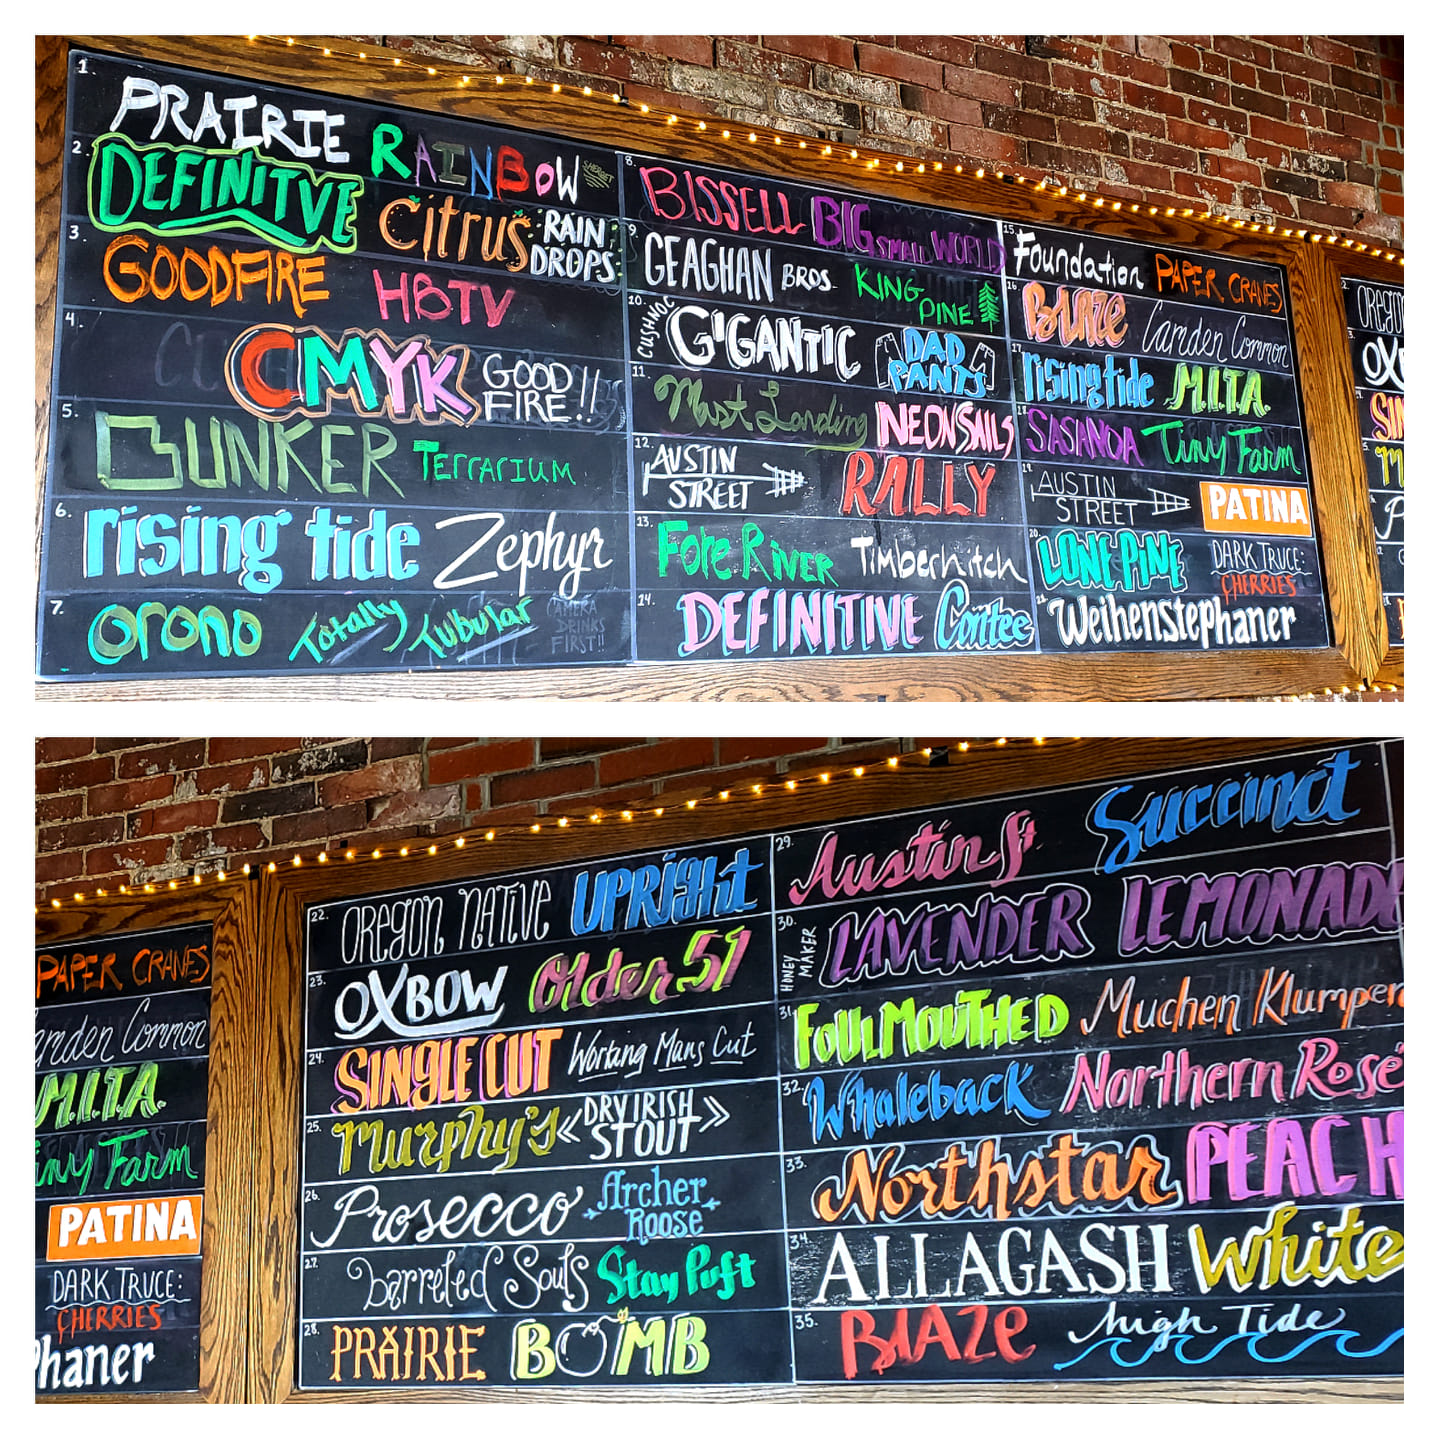 1.
PRAIRIE RAINBOW SHERBET
2.
DEFINITVE Citrus RAIN
DROPS
3.
GOODFIRE HBTV
4.
CMYK GOOD
FIRE!!
5.
BUNKER TERRARIUM
6.
rising tide Zephyr
7.
orono Totally Tubular
CAMERA
DRINKS
FIRST!!
8.
BISSELL BIG SMALL WORLD
9.
GEAGHAN BROS. KING
PINE
10.
CUSHNOC GIGANTIC DAD
PANTS
11.
Mast Landing NEON SAILS
12.
AUSTIN
STREET RALLY
13.
Fore River Timberhitch
14.
DEFINITIVE Contee
15.
Foundation PAPER CRANES
16.
Blaze Camden Common
17.
rising tide M.I.T.A.
SASANOA Tiny Farm
19.
AUSTIN
STREET PATINA
20.
LONE PINE DARK TRUCE:
CHERRIES
21.
Weihenstephaner
OREGON
OXB
SIN
M
P
PAPER CRANES
amden Common
M.I.T.A.
iny Farm
PATINA
DARK TRUCE:
CHERRIES
phaner
22.
OREGON NATIVE UPRIGHT
23.
OXBOW Older 51
24.
SINGLE CUT Working Mans Cut
25.
Murphy's «DRY IRISH
STOUT»
26.
Prosecco Archer
Roose
27.
barreled Souls Stay Puft
28.
PRAIRIE BOMB
29.
Austin St. Succinct
30.
HONEY
MAKER LAVENDER LEMONADE
31.
FOULMOUTHED Muchen Klumpen
32.
Whaleback Northern Rosé
33.
Northstar PEACH
34.
ALLAGASH White
35.
BLAZE high Tide